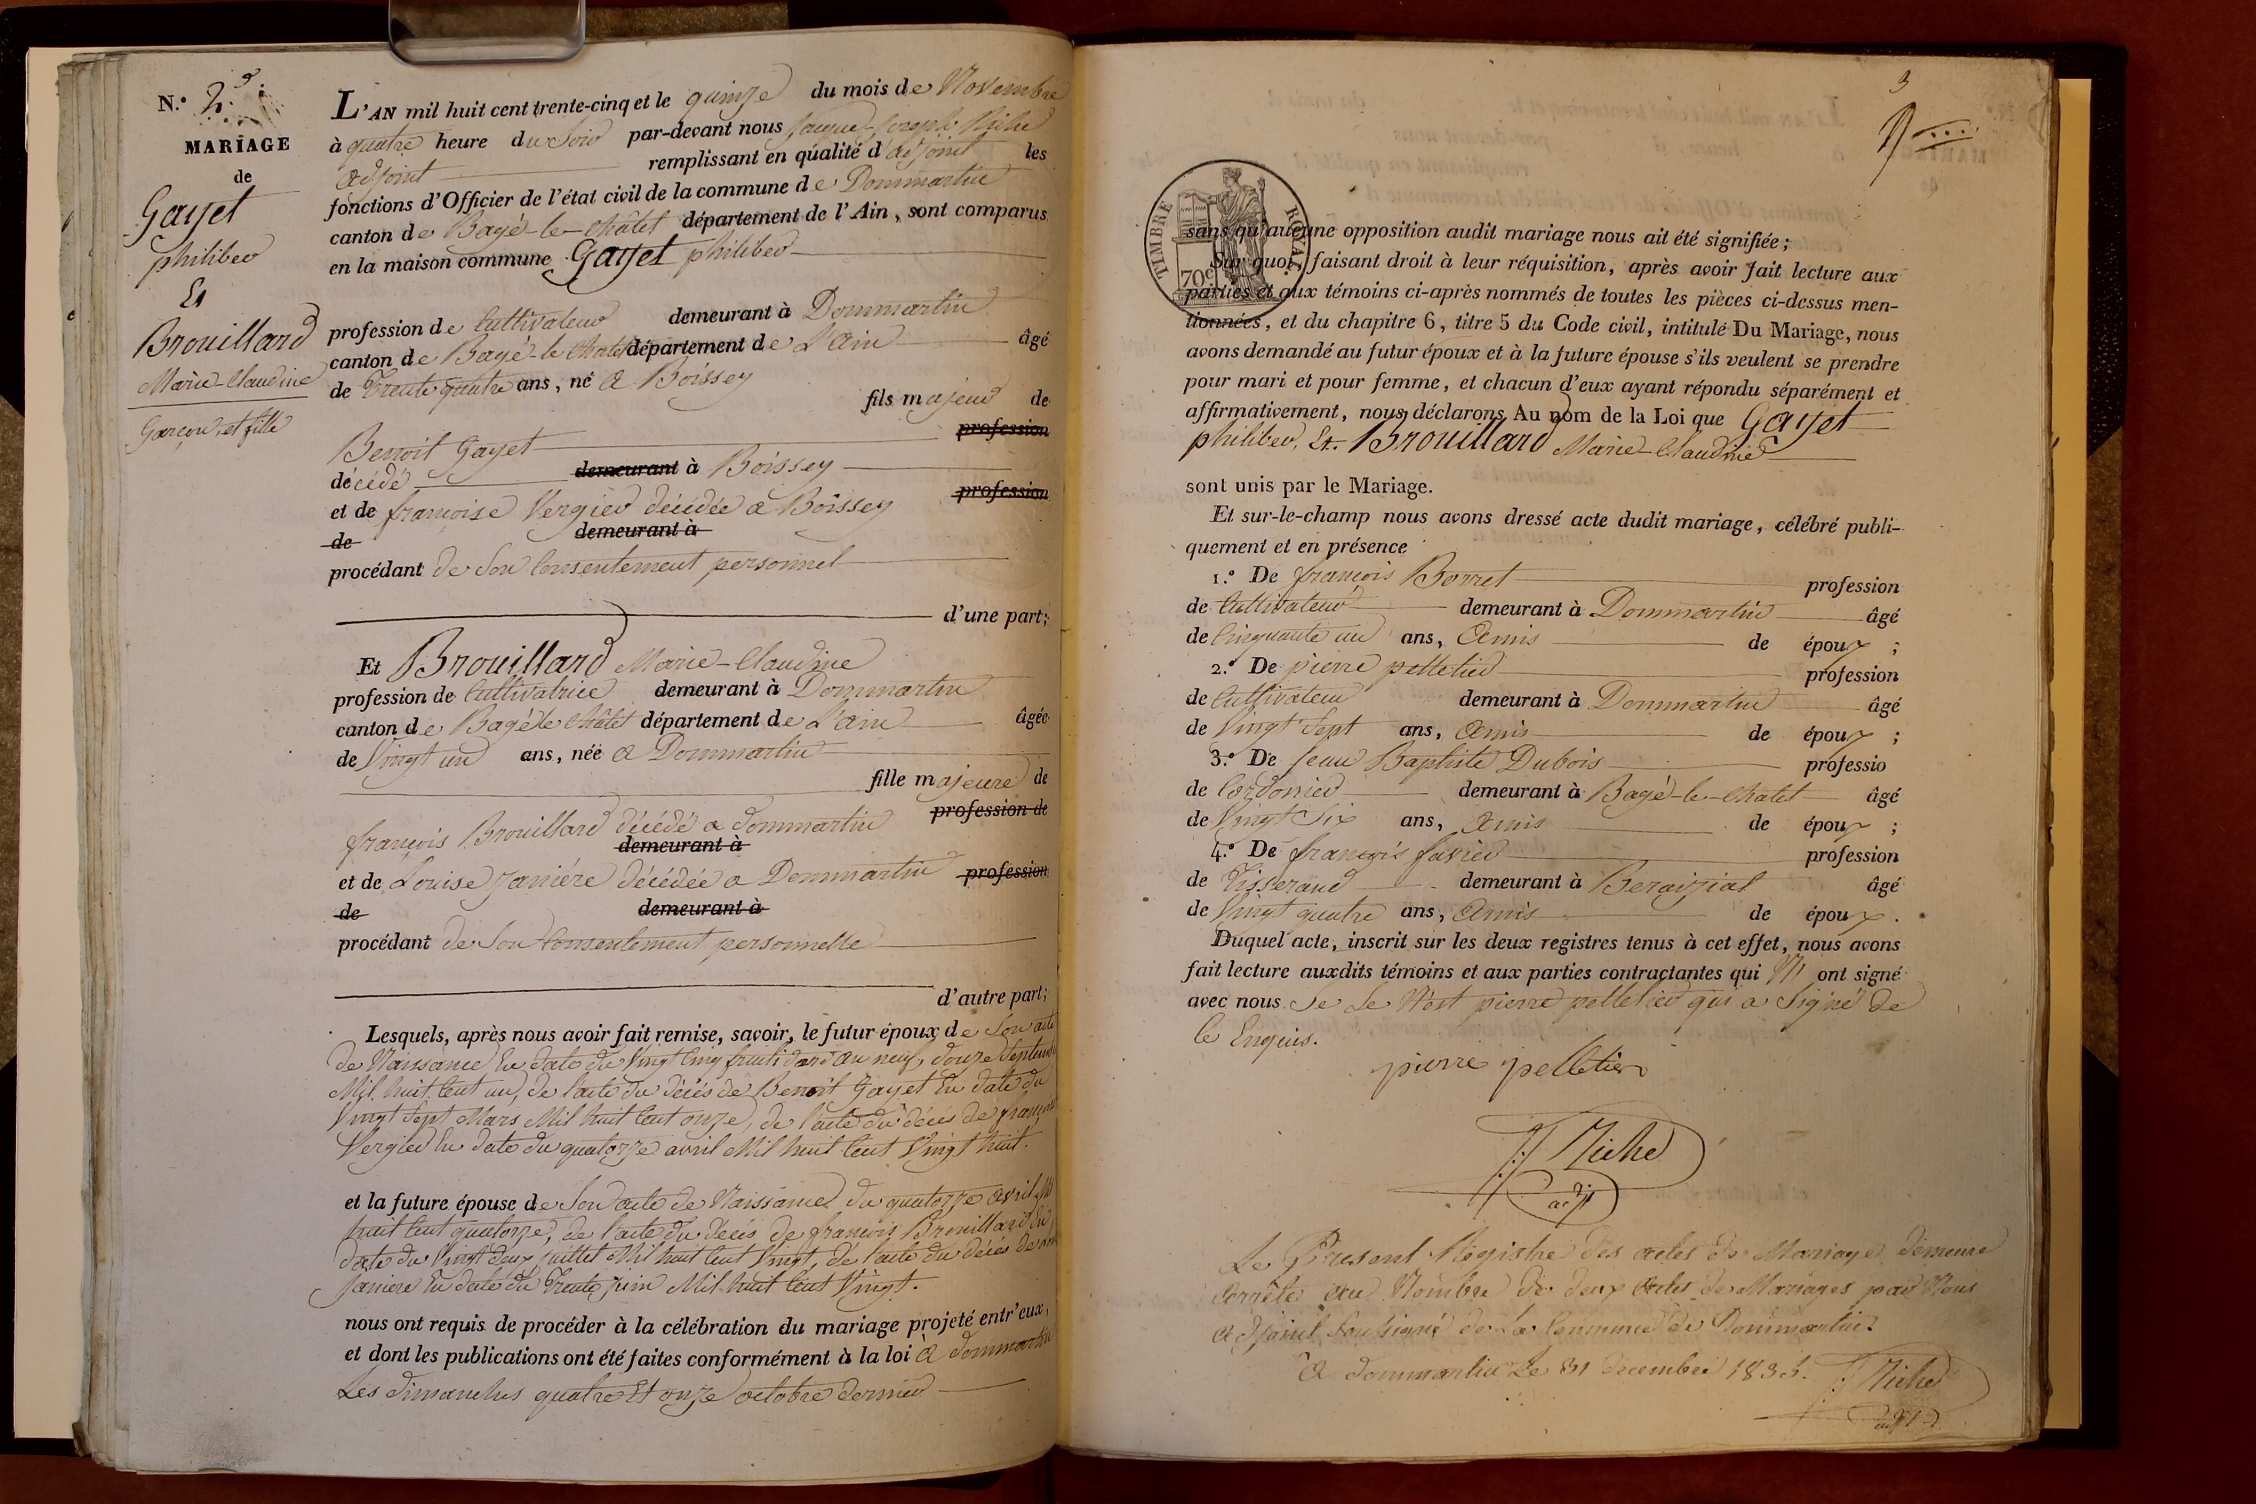 N.º 2.
MARIAGE
de
Gayet
philiber
Et
Brouillard
Marie-Claudine
Garçon et fille
L'AN mil huit cent trente-cinq et le quinze du mois de Novembre
à quatre heure du Soir par-devant nous Jacque-Joseph Miché
adjoint remplissant en qualité d'adjoint les
fonctions d'Officier de l'état civil de la commune de Dommartin
canton de Bagé-le-Châtel département de l'Ain, sont comparus
en la maison commune Gayet philiber
profession de Cultivateur demeurant à Dommartin
canton de Bagé-le Chatel département de L'ain âgé
de Trente quatre ans, né a Boissey
fils majeur de
Benoit Gayet profession
décédé demeurant à Boissey
et de françoise Vergier décédée a Boissey profession
de demeurant à
procédant de Son Consentement personnel
d'une part;
Et Brouillard Marie-Claudine
profession de Cultivatrice demeurant à Dommartin
canton de Bagé le Châtel département de L'ain âgée
de Vingt un ans, née a Dommartin
fille majeure de
françois Brouillard décédé a dommartin profession de
demeurant à
et de Louise Janiére décédée a Dommartin profession
de demeurant à
procédant de Son Consentement personnelle
d'autre part;
Lesquels, après nous avoir fait remise, savoir, le futur époux de Son acte
de Naissance En date du Vingt Cinq fructidor an neuf, douze Septembre
Mil huit Cent un, de l'acte du décés de Benoit Gayet En date du
Vingt Sept Mars Mil huit Cent onze, de l'acte du décés de françoise
Vergier En date du quatorze avril Mil huit Cent Vingt huit.
et la future épouse de Son acte de Naissance du quatorze avril Mil
huit Cent quatorze, de l'acte du décés de françois Brouillard En
date du Vingt deux juillet Mil huit Cent Vingt, de l'acte du décés de
Janiere En date du Trente juin Mil huit Cent Vingt.
nous ont requis de procéder à la célébration du mariage projeté entr'eux,
et dont les publications ont été faites conformément à la loi à dommartin
Les dimanches quatre Et onze octobre dernier
3
TIMBRE ROYAL.
70c
sans qu'aucune opposition audit mariage nous ait été signifiée;
Sur quoi, faisant droit à leur réquisition, après avoir fait lecture aux
parties et aux témoins ci-après nommés de toutes les pièces ci-dessus men-
tionnées, et du chapitre 6, titre 5 du Code civil, intitulé Du Mariage, nous
avons demandé au futur époux et à la future épouse s'ils veulent se prendre
pour mari et pour femme, et chacun d'eux ayant répondu séparément et
affirmativement, nous déclarons Au nom de la Loi que Gayet
philiber, Et Brouillard Marie-Claudine
sont unis par le Mariage.
Et sur-le-champ nous avons dressé acte dudit mariage, célébré publi-
quement et en présence
1.º De françois Borret profession
de Cultivateur demeurant à Dommartin âgé
de Cinquante un ans, amis de époux ;
2.º De pierre pelletier profession
de Cultivateur demeurant à Dommartin âgé
de Vingt Sept ans, amis de époux ;
3.º De Jean Baptiste Dubois professio
de Cordonier demeurant à Bagé-le-Chatel âgé
de Vingt Six ans, amis de époux ;
4.º De françois favier profession
de Tisserand demeurant à Beraizial âgé
de Vingt quatre ans, amis de époux.
Duquel acte, inscrit sur les deux registres tenus à cet effet, nous avons
fait lecture auxdits témoins et aux parties contractantes qui N' ont signé
avec nous Se Le N'est pierre pelletier qui a Signé de
le Enquis.
pierre pelletier
Miché
adjt
Le Present Régistre des actes de Mariage demeure
arrêté au Nombre de deux actes de Mariages par Nous
adjoint Soussigné de La Commune de Dommartin.
a dommartin Le 31 decembre 1835. Miché
adjt